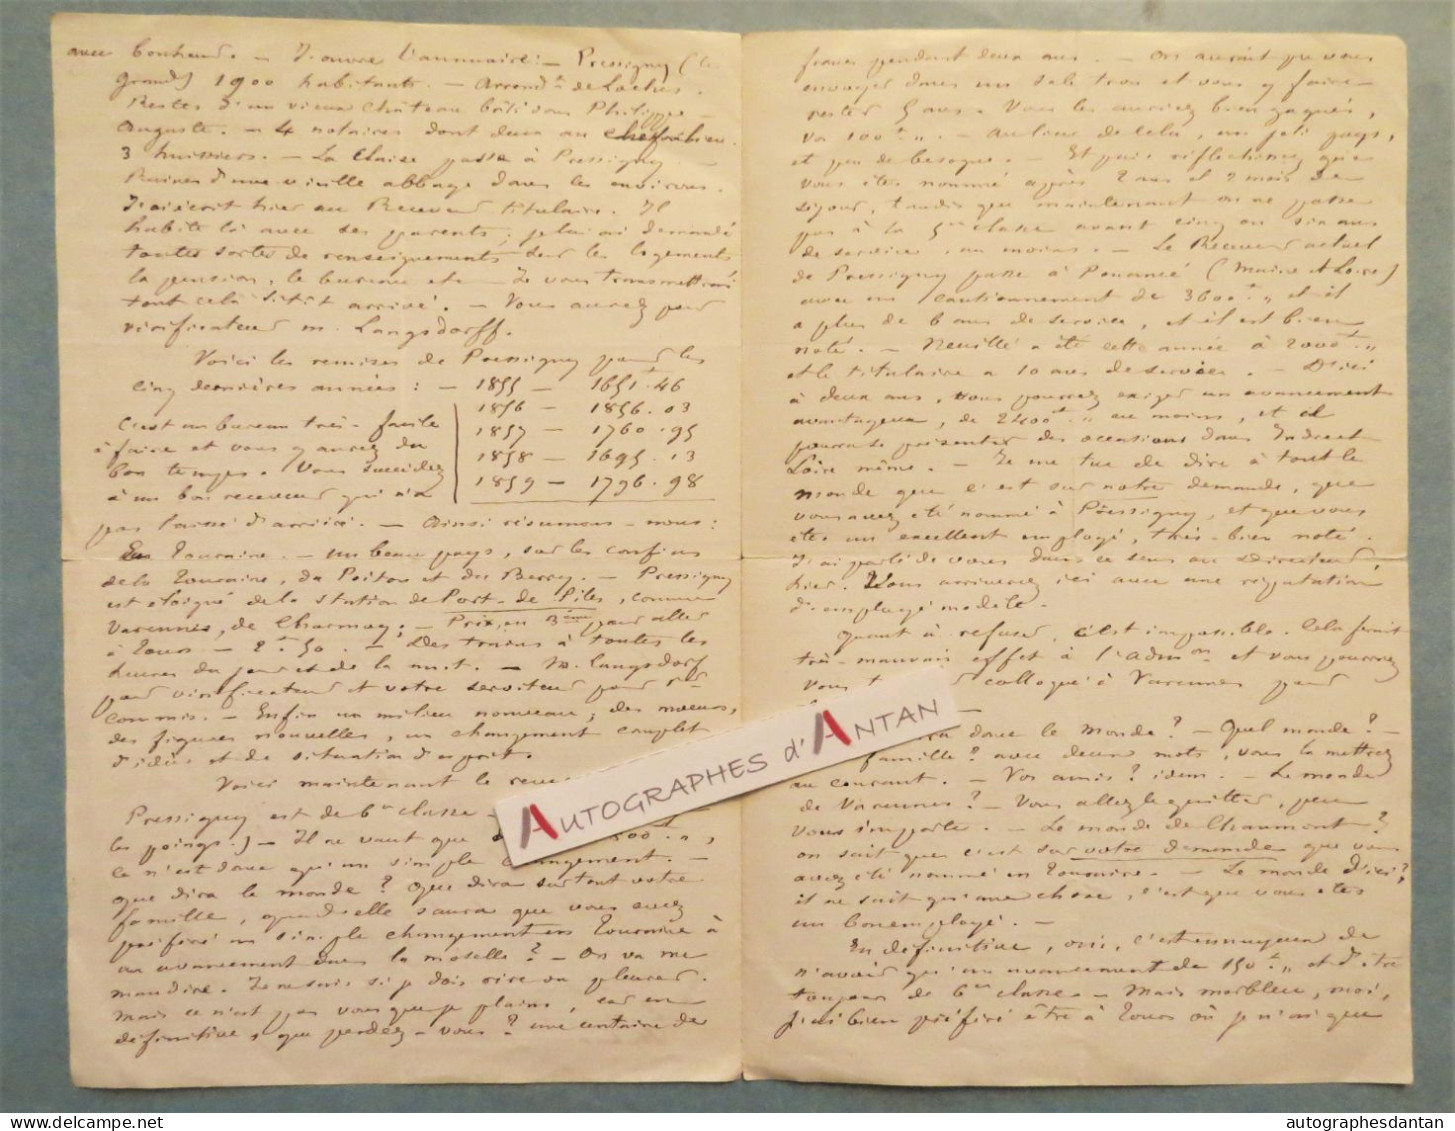 avec bonheur. — J'ouvre l'annuaire : — Pressigny (le
grand) 1900 habitants. — Arrond.t de Loches.
Restes d'un vieux château bâti sous Philippe-
Auguste. — 4 notaires dont deux au chef lieu.
3 huissiers. — La Claise passe à Pressigny. —
Ruines d'une vieille abbaye dans les environs.
J'ai écrit hier au Receveur titulaire. Il
habite là avec ses parents ; je lui ai demandé
toutes sortes de renseignements sur les logements
la pension, le bureau etc — Je vous transmettrai
tout cela sitôt arrivé. — Vous aurez pour
vérificateur M. Langsdorff.
Voici les remises de Pressigny pour les
cinq dernières années : — 1855 — 1651f.46
1856 — 1856.03
C'est un bureau très-facile
1857 — 1760.95
à faire et vous y aurez du
1858 — 1695.13
bon temps. Vous succédez
1859 — 1796.98
à un bon receveur qui n'a
pas laissé d'arriéré. — Ainsi résumons-nous :
En Touraine. — un beau pays, sur les confins
de la Touraine, du Poitou et du Berry. — Pressigny
est éloigné de la station de Port-de-Piles, comme
Varennes, de Charmay ; — Prix, en 3ème pour aller
à Tours — 2f.50. — Des trains à toutes les
heures du jour et de la nuit. — M. Langsdorf
pour vérificateur et votre serviteur pour
commis. — Enfin un milieu nouveau ; des mœurs,
des figures nouvelles, un changement complet
d'idées et de situation d'esprit.
Voici maintenant le revers
Pressigny est de 6e classe —
les poings.) — Il ne vaut que
ce n'est donc qu'un simple changement. —
que dira le monde ? Que dira surtout votre
famille, quand elle saura que vous avez
préféré un simple changement en Touraine à
un avancement dans la Moselle ? — On va me
maudire. Je ne sais si je dois rire ou pleurer.
Mais ce n'est pas vous que je plains, car en
définitive, que perdez-vous ? Une centaine de
francs pendant deux ans. — On aurait pu vous
envoyer dans un sale trou et vous y faire
rester 5 ans. Vous les auriez bien gagnés,
vos 100f. — Au lieu de cela, un joli pays,
et peu de besogne. — Et puis réfléchissez que
vous êtes nommé après 2 ans et 2 mois de
séjour, tandis que maintenant on ne passe
pas à la 5e classe avant cinq ou six ans
de service, au moins. — Le Receveur actuel
de Pressigny passe à Pouancé (Maine & Loire)
avec un cautionnement de 3600f. et il
a plus de 6 ans de service, et il est bien
noté. — Neuillé a été cette année à 2000f.
et le titulaire a 10 ans de services. — D'ici
à deux ans, vous pourrez exiger un avancement
avantageux, de 2400f. au moins, et il
pourra se présenter des occasions dans Indre et
Loire même. — Je me tue de dire à tout le
monde que c'est sur notre demande, que
vous avez été nommé à Pressigny, et que vous
êtes un excellent employé, très-bien noté.
J'ai parlé de vous dans ce sens au Directeur,
hier. Vous arriverez ici avec une réputation
d'employé modèle.
Quant à refuser, c'est impossible. Cela ferait
très-mauvais effet à l'adm.on et vous pourriez
vous colloqué à Varennes pour
donc le monde ? — Quel monde ? —
famille ? avec deux mots, vous la mettrez
au courant. — Vos amis ? idem. — Le monde
de Varennes ? — Vous allez le quitter, peu
vous importe. — Le monde de Chaumont ?
on sait que c'est sur votre demande que vous
avez été nommé en Touraine. — Le monde d'ici ?
il ne sait qu'une chose, c'est que vous êtes
un bon employé. —
En définitive, oui, c'est ennuyeux de
n'avoir qu'un avancement de 150f. et d'être
toujours de 6e classe. — Mais morbleu, moi,
j'ai bien préféré être à Tours où je n'ai que
AUTOGRAPHES d'ANTAN
autographesdantan